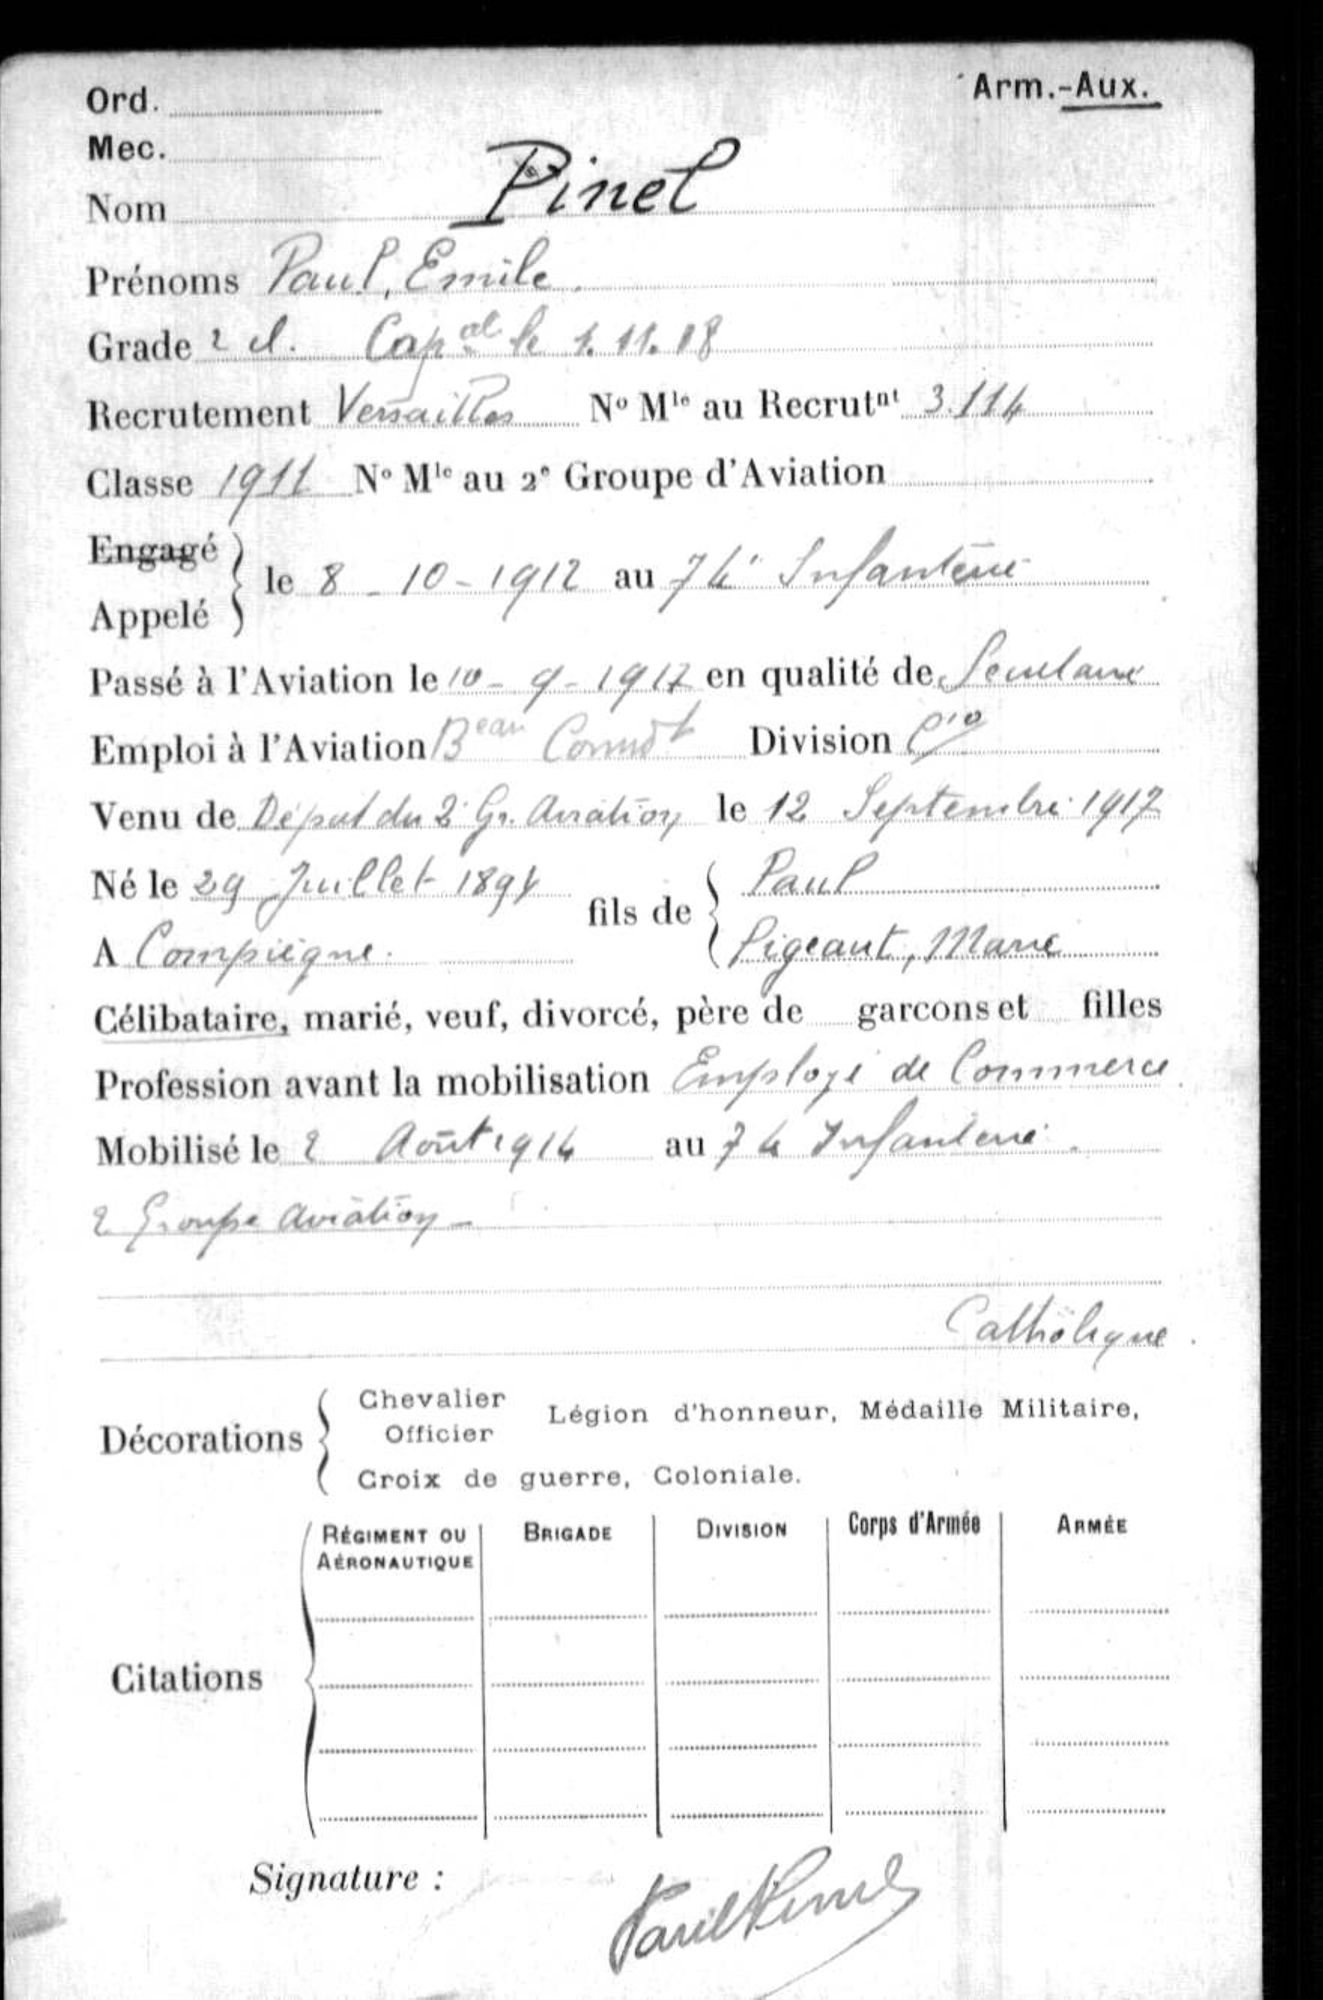 Arm.-Aux.
Ord.
Mec.
Nom Pinel
Prénoms Paul, Emile.
Grade 2 cl. Cap al le 1.11.18
Recrutement Versailles Nº Mle au Recrutnt 3.114
Classe 1911 Nº Mle au 2e Groupe d'Aviation
Engagé
le 8 - 10 - 1912 au 74e Infanterie
Appelé
Passé à l'Aviation le 10 - 9 - 1917 en qualité de
Emploi à l'Aviation Beau Commdt Division Cie
Venu de Dépôt du 2e Gr. Aviation le 12 Septembre 1917
Né le 29 Juillet 1891 fils de Paul
A Compiègne. Pigeaut, Marie
Célibataire, marié, veuf, divorcé, père de garcons et filles
Profession avant la mobilisation Employé de Commerce
Mobilisé le 2 Août 1914 au 74 Infanterie.
2 Groupe Aviation -
Catholique.
Décorations Chevalier Officier Légion d'honneur, Médaille Militaire,
Croix de guerre, Coloniale.
Citations
RÉGIMENT OU AÉRONAUTIQUE BRIGADE DIVISION Corps d'Armée ARMÉE
Signature :
Paul Pinel